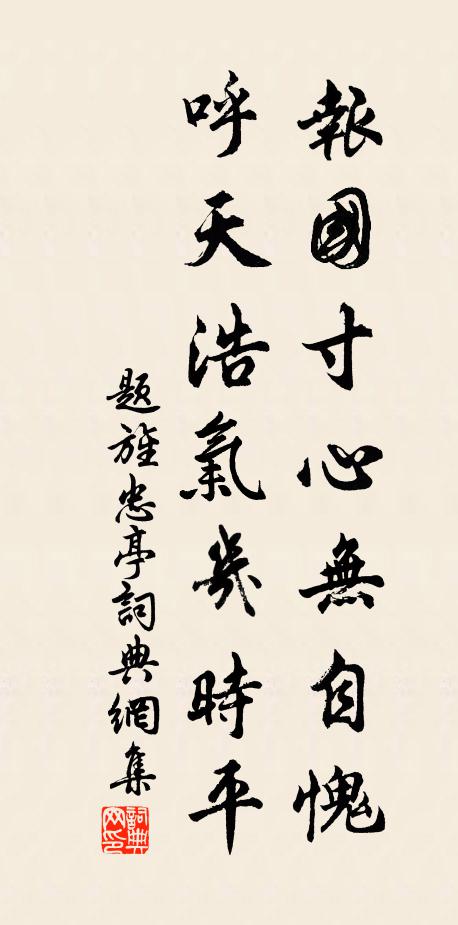 報國寸心無自愧
呼天浩氣幾時平
題旌忠亭詞典網集
詞典網印